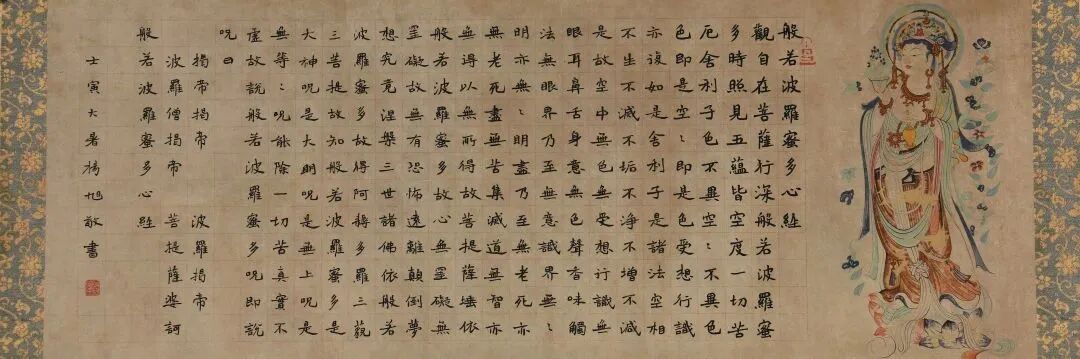 般若波羅蜜多心經
觀自在菩薩行深般若波羅蜜
多時照見五蘊皆空度一切苦
厄舍利子色不異空〻不異色
色即是空〻即是色受想行識
亦復如是舍利子是諸法空相
不生不滅不垢不淨不增不減
是故空中無色無受想行識無
眼耳鼻舌身意無色聲香味觸
法無眼界乃至無意識界無〻
明亦無〻明盡乃至無老死亦
無老死盡無苦集滅道無智亦
無得以無所得故菩提薩埵依
般若波羅蜜多故心無罣礙無
罣礙故無有恐怖遠離顛倒夢
想究竟涅槃三世諸佛依般若
波羅蜜多故得阿耨多羅三藐
三菩提故知般若波羅蜜多是
大神呪是大明呪是無上呪是
無等〻呪能除一切苦真實不
虛故說般若波羅蜜多呪即說
呪曰
揭帝揭帝 波羅揭帝
波羅僧揭帝 菩提薩婆訶
般若波羅蜜多心經
壬寅大暑楊旭敬書